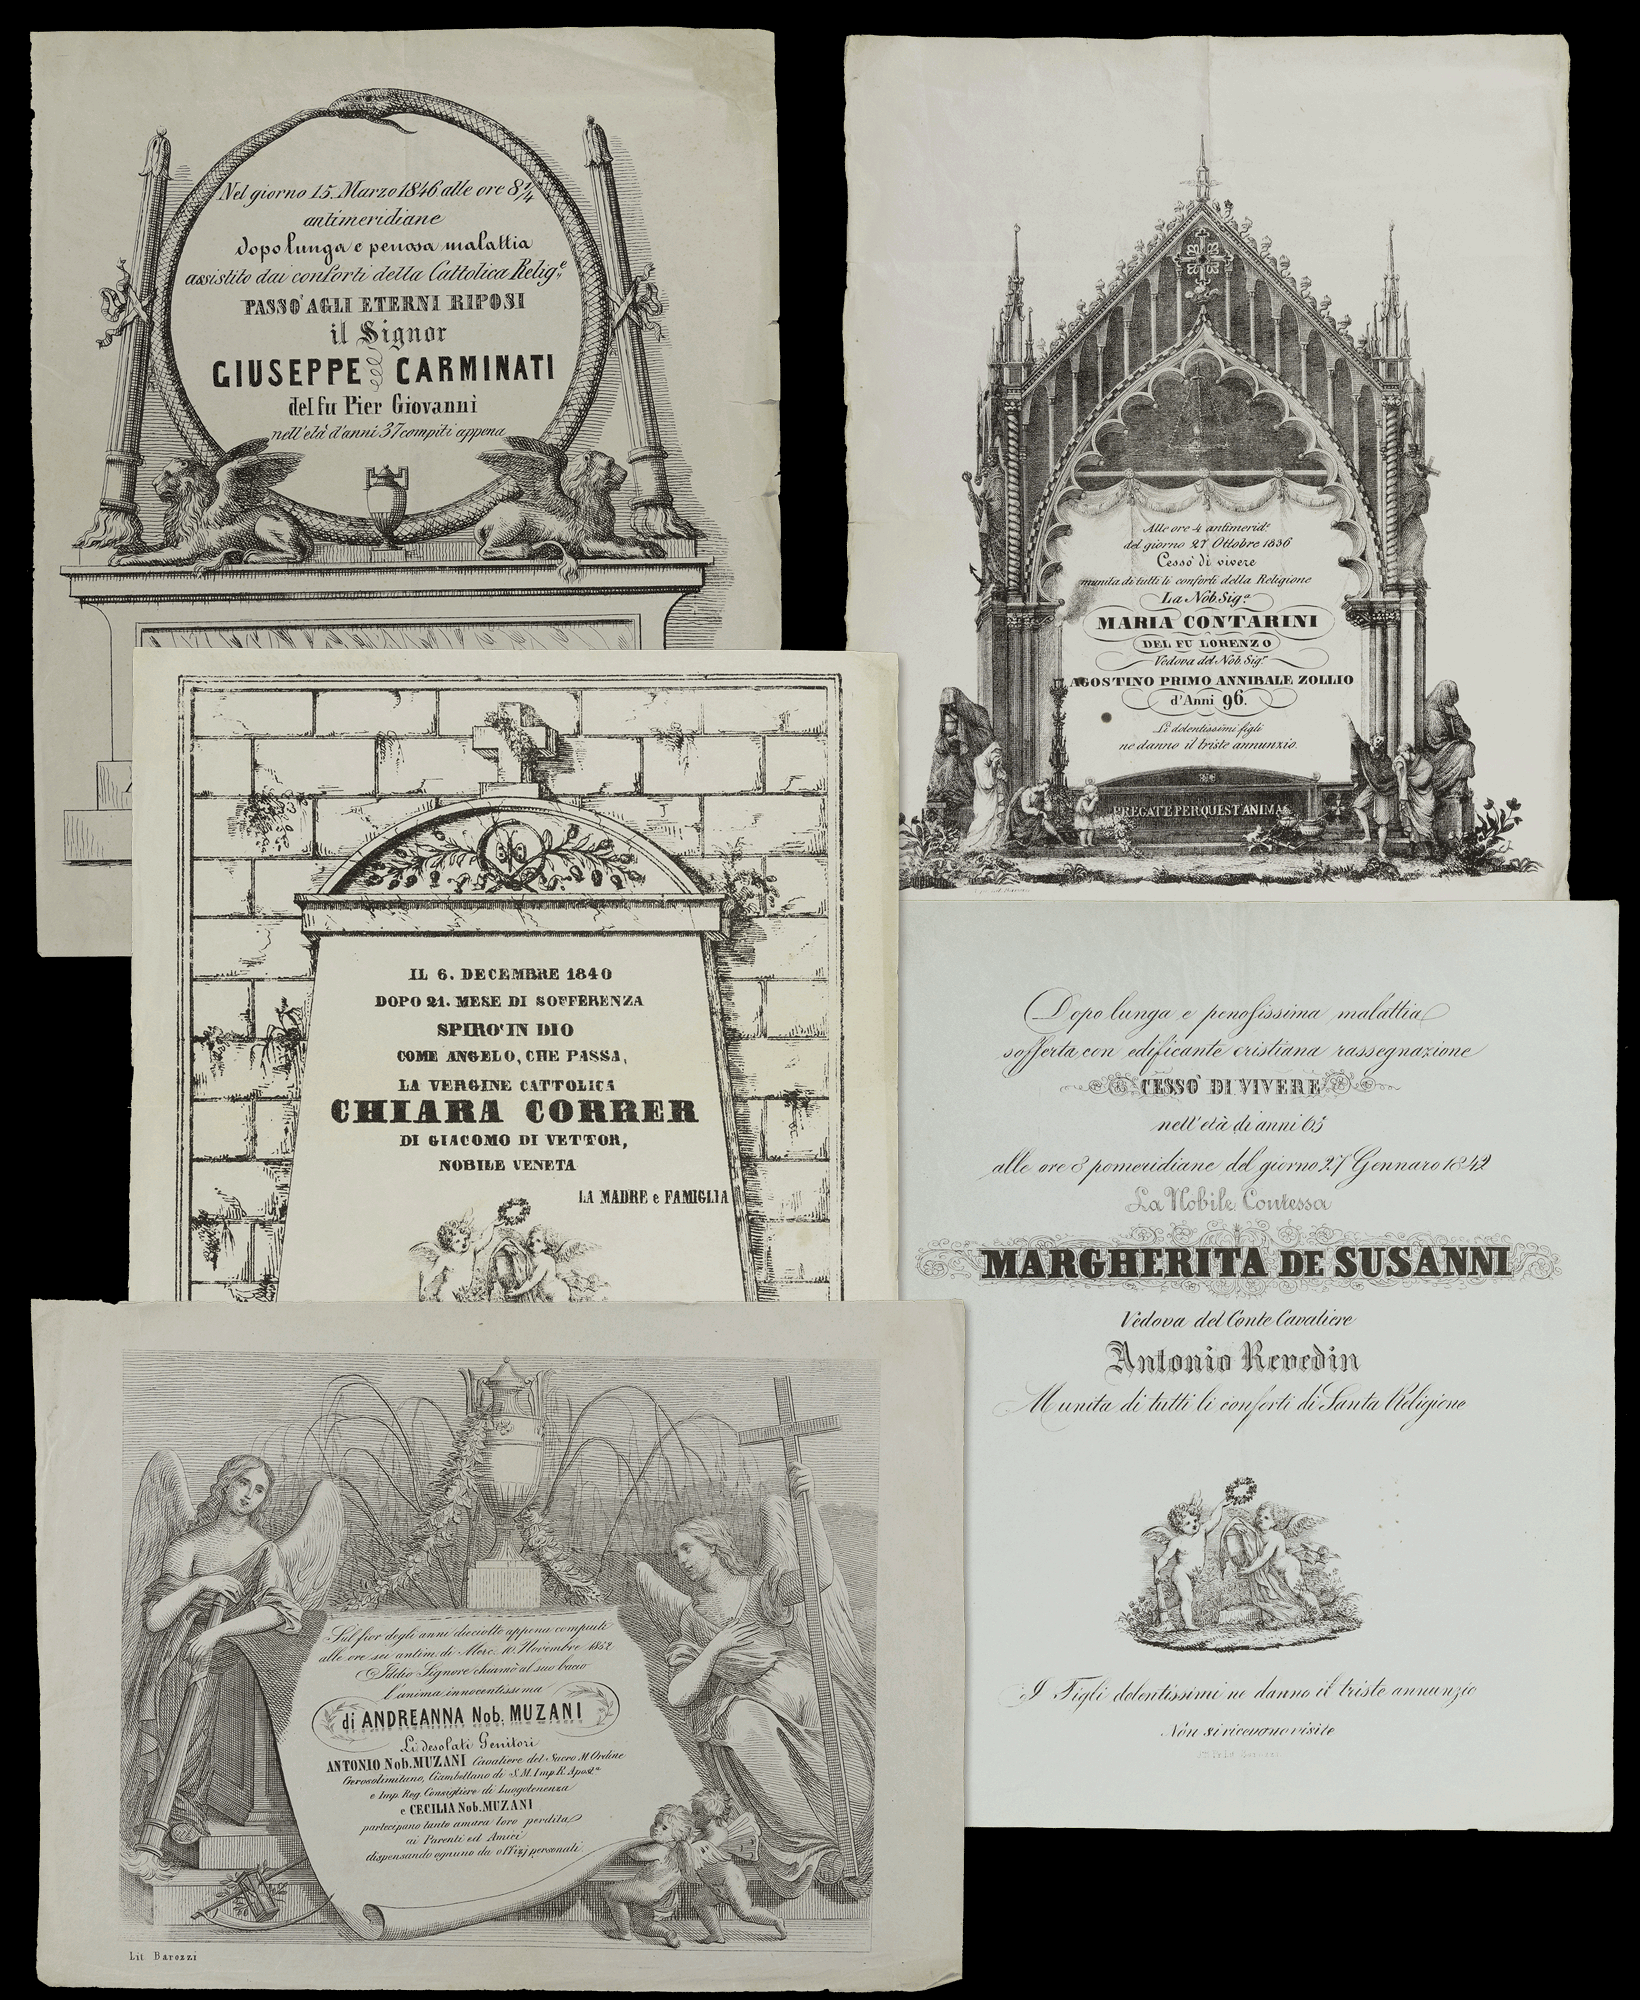 Nel giorno 15. Marzo 1846 alle ore 8 1/4
antimeridiane
dopo lunga e penosa malattia
assistito dai conforti della Cattolica Relig.e
PASSO' AGLI ETERNI RIPOSI
il Signor
GIUSEPPE CARMINATI
del fu Pier Giovanni
nell'età d'anni 37 compiti appena
Alle ore 4 antimerid.e
del giorno 27 Ottobre 1836
Cessò di vivere
munita di tutti li conforti della Religione
La Nob. Sig.a
MARIA CONTARINI
DEL FU LORENZO
Vedova del Nob. Sig.r
AGOSTINO PRIMO ANNIBALE ZOLLIO
d'Anni 96.
Li dolentissimi figli
ne danno il triste annunzio.
PREGATE PER QUEST'ANIMA
IL 6. DECEMBRE 1840
DOPO 21. MESE DI SOFFERENZA
SPIRO' IN DIO
COME ANGELO, CHE PASSA,
LA VERGINE CATTOLICA
CHIARA CORRER
DI GIACOMO DI VETTOR,
NOBILE VENETA
LA MADRE e FAMIGLIA
Dopo lunga e penosissima malattia
sofferta con edificante cristiana rassegnazione
CESSO' DI VIVERE
nell'età di anni 65
alle ore 8 pomeridiane del giorno 27 Gennaro 1842
La Nobile Contessa
MARGHERITA DE SUSANNI
Vedova del Conte Cavaliere
Antonio Revedin
Munita di tutti li conforti di Santa Religione
I Figli dolentissimi ne danno il triste annunzio
Non si ricevano visite
Sul fior degli anni dieciotto appena compiuti
alle ore sei antim. di Merc. 10 Novembre 1852
Iddio Signore chiamò al suo bacio
l'anima innocentissima
di ANDREANNA Nob. MUZANI
Li desolati Genitori
ANTONIO Nob. MUZANI Cavaliere del Sacro M. Ordine
Gerosolimitano, Ciambellano di S.M. Imp. R. Apost.a
e Imp. Reg. Consigliere di Luogotenenza
e CECILIA Nob. MUZANI
partecipano tanto amara loro perdita
ai Parenti ed Amici
dispensando ognuno da offizj personali
Lit. Barozzi